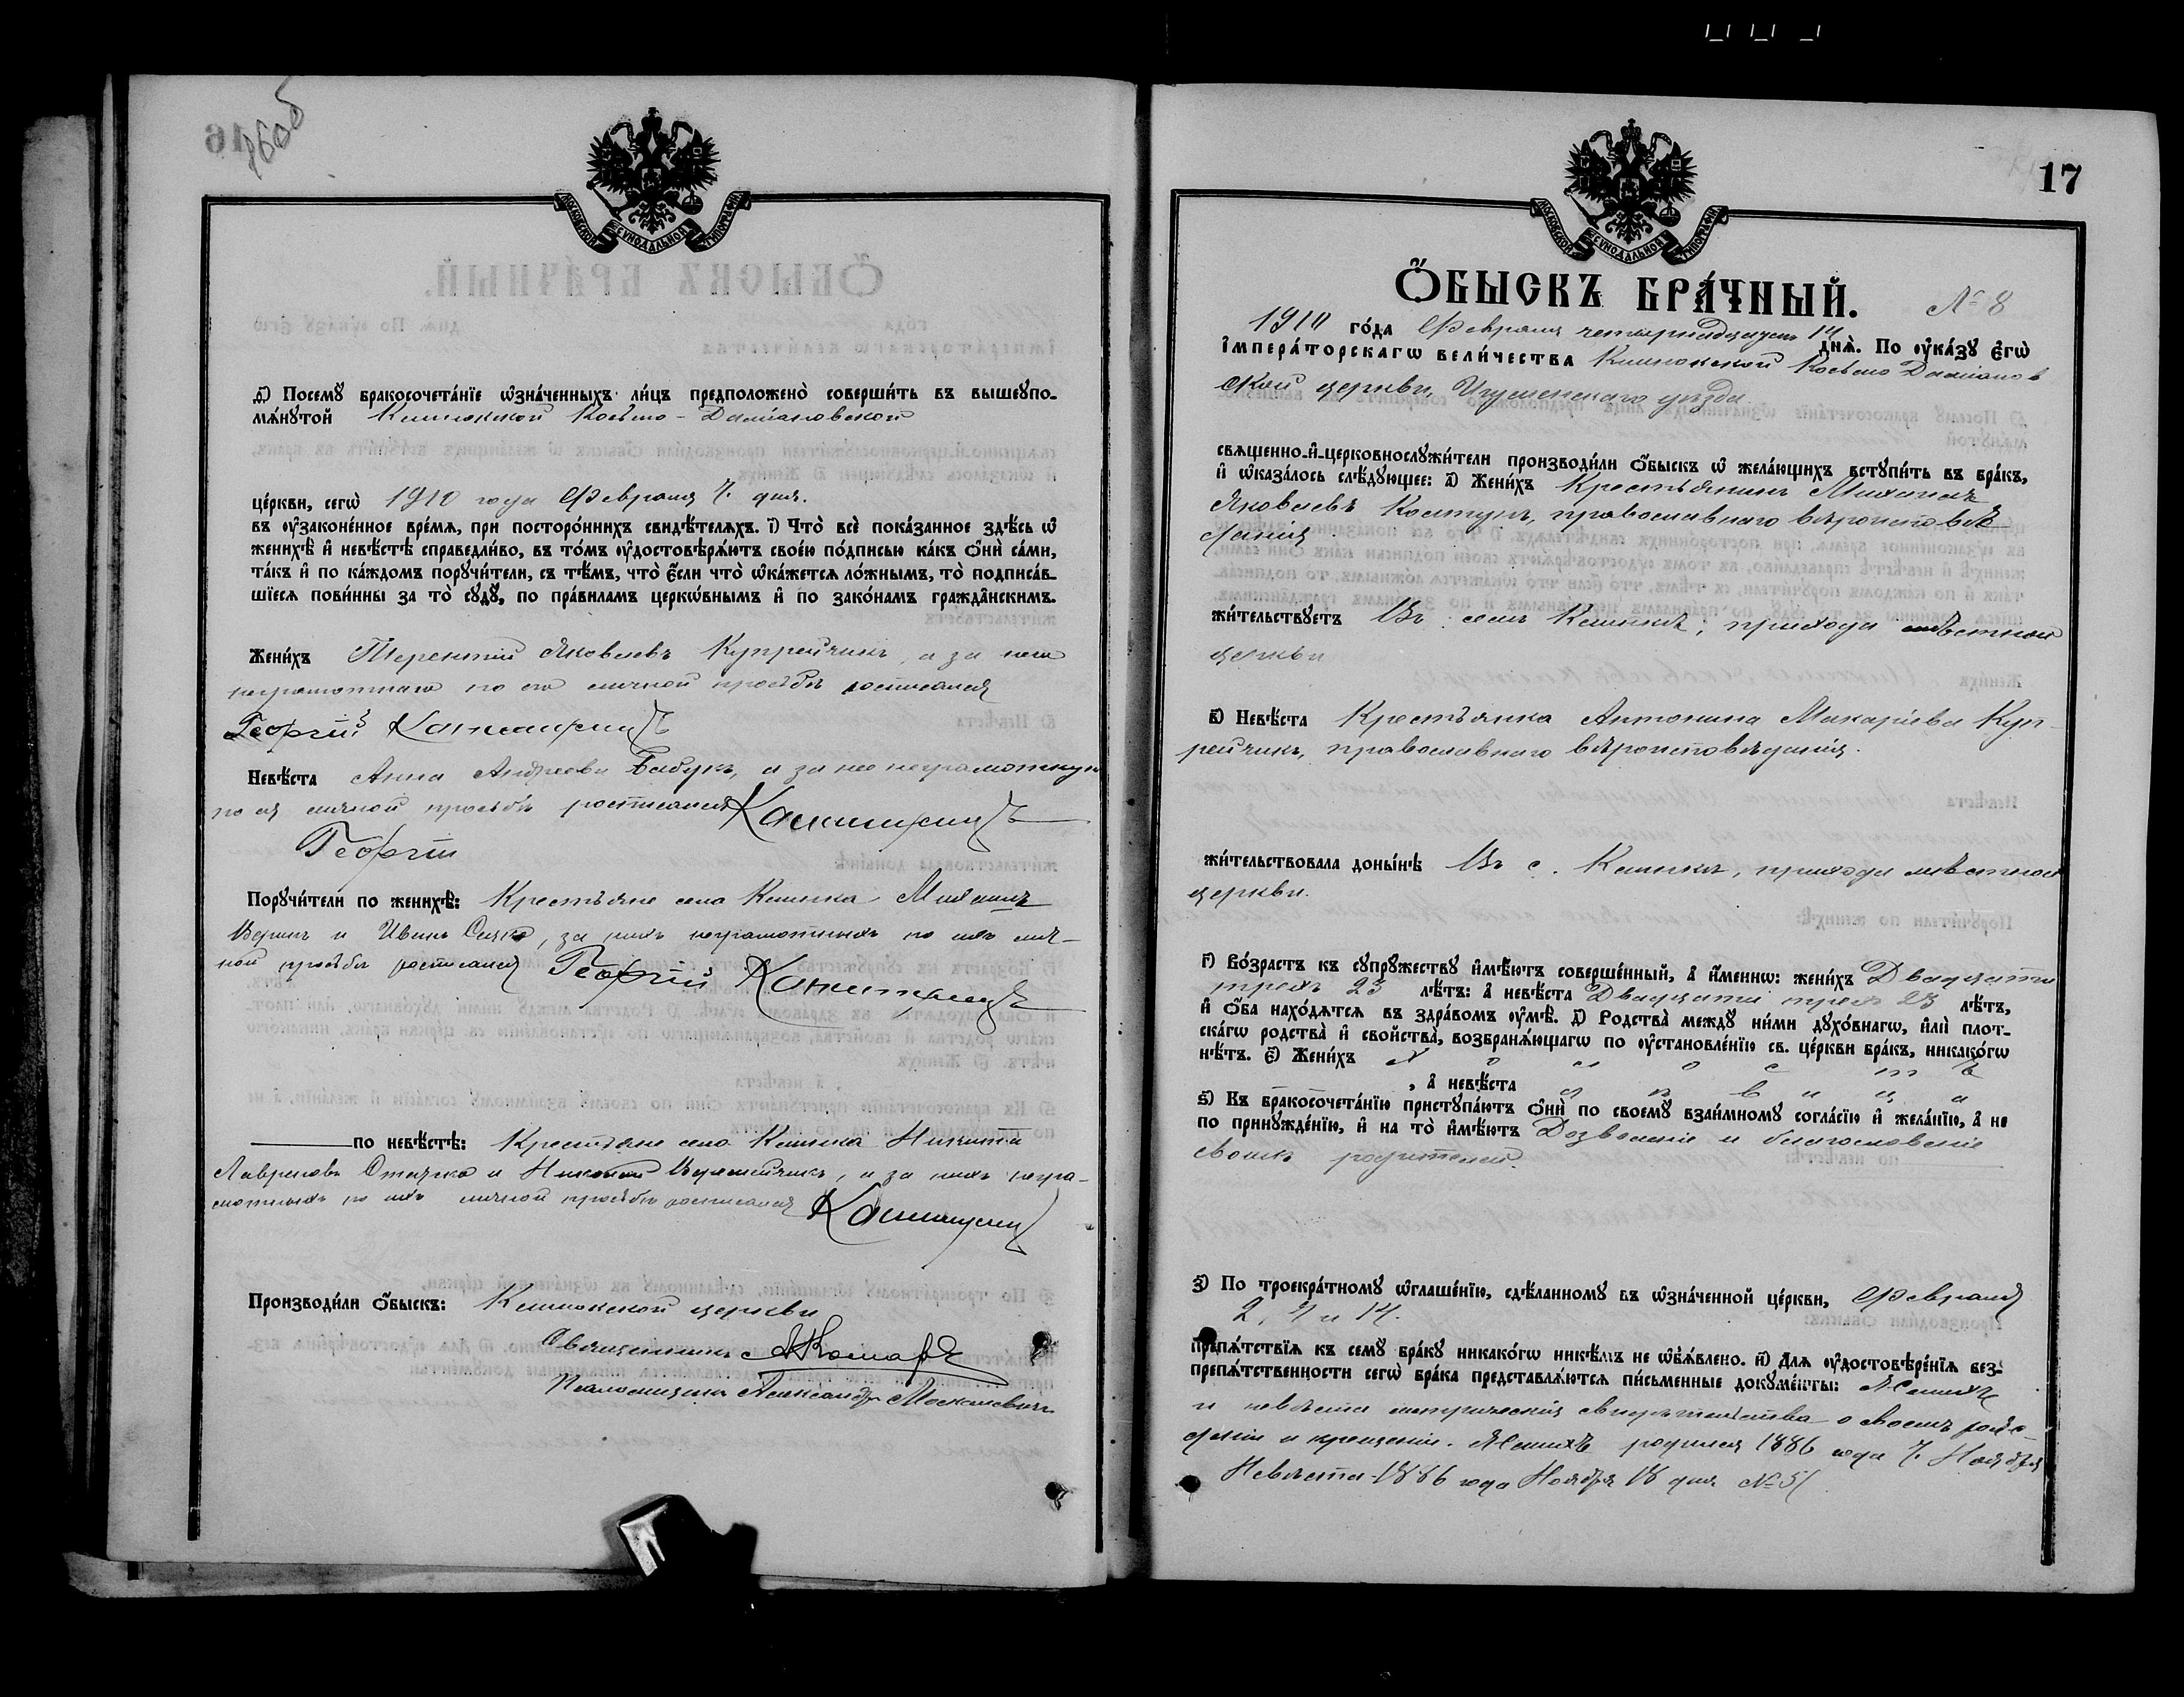 16об
МОСКОВСКОЙ СѴНОДАЛЬНОЙ ТИПОГРАФІИ
д҃) Посемꙋ бракосочета́нїе ѡ҆зна́ченныхъ ли́цъ предположено̀ соверши́ть въ вышеꙋпо-
мѧ́нꙋтой Клинокской Косьмо-Даміановской
це́ркви, сегѡ̀ 1910 года Февраля 7. дня.
въ ᲂу҆законе́нное вре́мѧ, при посторо́ннихъ свидѣ́телѧхъ. і҃) Что̀ всѐ пока́занное здѣ́сь ѡ҆
женихѣ̀ и҆ невѣ́стѣ справедли́во, въ то́мъ ᲂу҆достовѣрѧ́ютъ свое́ю по́дписью ка́къ ѻ҆нѝ са́ми,
та́къ и҆ по ка́ждомъ порꙋчи́тели, съ тѣ́мъ, что̀ є҆́сли что̀ ѡ҆ка́жетсѧ ло́жнымъ, то̀ подписа́в-
шїесѧ пови́нны за то̀ сꙋдꙋ̀, по пра́виламъ церкѡ́внымъ и҆ по зако́намъ гражда́нскимъ.
Жени́хъ Терентій Яковлевъ Купрейчикъ, а за него
неграмотнаго по его личной просьбѣ росписался
Георгій
Невѣ́ста Анна Андреева Бабукъ, а за нее неграмотную
по ея личной просьбѣ росписался
Георгій
Порꙋчи́тели по женихѣ̀: Крестьяне села Клинка Михаилъ
и Иванъ, за нихъ неграмотныхъ по ихъ лич-
ной просьбѣ росписался Георгій
по невѣ́стѣ: Крестьяне села Клинка Никита
Лавреновъ и, а за нихъ негра-
мотныхъ по ихъ личной просьбѣ росписался
Производи́ли ѻ҆́быскъ: Клинокской церкви
Священникъ А Комаръ
Псаломщикъ Александръ Москалевичъ
17
МОСКОВСКОЙ СѴНОДАЛЬНОЙ ТИПОГРАФІИ
Ѻ҆́БЫСКЪ БРА́ЧНЫЙ. № 8
1910 го́да Февраля четырнадцатаго 14 днѧ̀. По ᲂу҆ка́зꙋ є҆гѡ̀
і҆мпера́торскагѡ вели́чества Клинокской Косьмо Даміанов
ской церкви, Игуменскаго уѣзда
свѧщенно-и҆-церковнослꙋжи́тели производи́ли ѻ҆́быскъ ѡ҆ жела́ющихъ встꙋпи́ть въ бра́къ,
и҆ ѡ҆каза́лось слѣ́дꙋющее: а҃) Жени́хъ Крестьянинъ Михаилъ
Яковлевъ Колтунъ, православнаго вѣроисповѣ-
данія
жи́тельствꙋетъ Въ селѣ Клинкѣ, прихода мѣстной
церкви
в҃) Невѣ́ста Крестьянка Антонина Макаріева Куп-
рейчикъ, православнаго вѣроисповѣданія.
жи́тельствовала доны́нѣ Въ с. Клинкѣ, прихода мѣстной
церкви.
г҃) Во́зрастъ къ сꙋпрꙋ́жествꙋ и҆мѣ́ютъ соверше́нный, а҆ и҆́менно: жени́хъ Двадцати
трехъ 23 лѣ́тъ: а҆ невѣ́ста Двадцати трехъ 23 лѣ́тъ,
и҆ ѻ҆́ба нахо́дѧтсѧ въ здра́вомъ ᲂу҆мѣ̀. д҃) Родства̀ междꙋ ни́ми дꙋхо́внагѡ, и҆лѝ плот-
ска́гѡ родства̀ и҆ свойства̀, возбранѧ́ющагѡ по ᲂу҆становле́нїю св. це́ркви бра́къ, никако́гѡ
нѣ́тъ. є҃) Жени́хъ х о л о с т ъ
, а҆ невѣ́ста д ѣ в и ц а
ѕ҃) Къ бракосочета́нїю пристꙋпа́ютъ ѻ҆нѝ по своемꙋ̀ взаи́мномꙋ согла́сїю и҆ жела́нїю, а҆ не
по принꙋжде́нїю, и҆ на то̀ и҆мѣ́ютъ Дозволеніе и благословеніе
своихъ родителей.
з҃) По троекра́тномꙋ ѡ҆глаше́нїю, сдѣ́ланномꙋ въ ѡ҆зна́ченной це́ркви, Февраля
2, 7 и 14.
препѧ́тствїѧ къ семꙋ̀ бра́кꙋ никако́гѡ никѣ́мъ не ѡ҆б̾ѧ́влено. и҃) Длѧ ᲂу҆достовѣре́нїѧ без-
препѧ́тственности сегѡ̀ бра́ка представлѧ́ютсѧ пи́сьменные докꙋме́нты: Женихъ
и невѣста метрическія свидѣтельства о своемъ рож-
деніи и крещеніи. Женихъ родился 1886 года 7. Ноября
Невѣста 1886 года Ноября 18 дня № 51